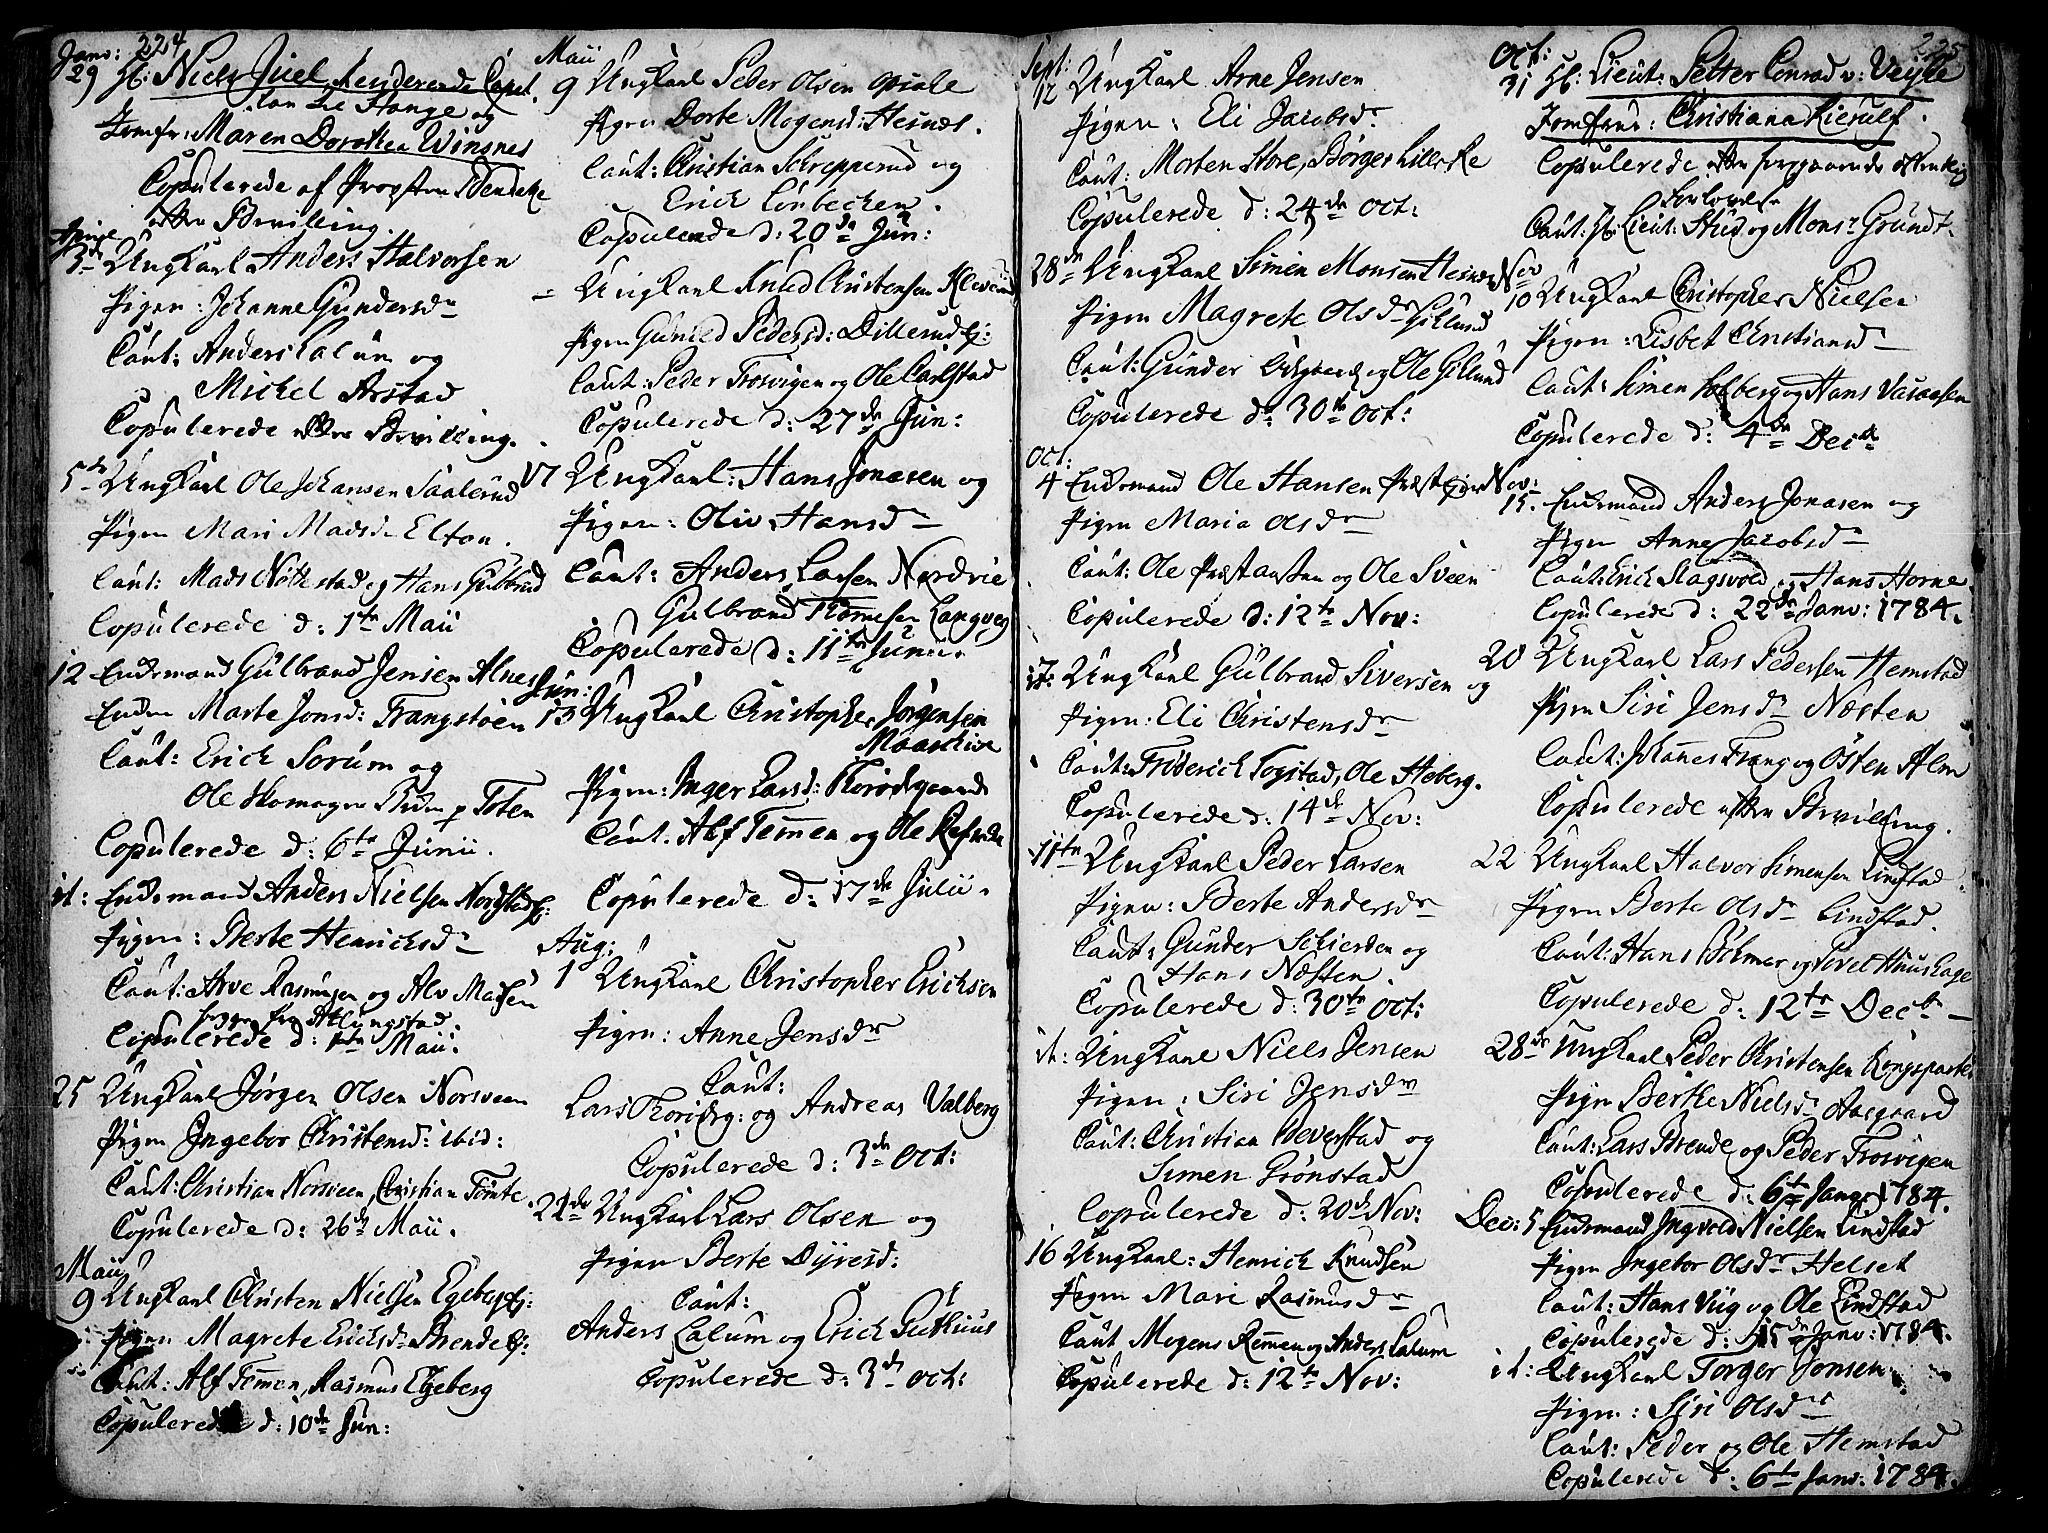 224
Janv:
29 Hr: Niels Juel residerende Capel.
til Stange og
Jomfr: Maren Dorothea Winsnes
Copulerede af Provsten Wendeke
efter Bevilling.
April
3de Ungkarl Anders Halvorsen
Pigen: Johanne Gundersdr
Caut: Anders Lalum og
Michel Arstad
Copulerede efter Bevilling.
5te Ungkarl Ole Johansen Saalerud
Pigen Mari Madsdr Elton.
Caut: Mads Nøtlestad og Hans Gulbrud
Copulerede d: 1te Maii
12 Enkemand Gulbrand Jensen Alnes
Enken Marte Jonsd: Frangstøen
Caut: Erich Sorum og
Ole Skomager Thune p Toten
Copulerede d: 6te Junii.
it: Enkemand Anders Nielsen Nordstadej:
Pigen: Berte Henrichsdr
Caut: Arve Rasmusen og Alv Madsen
begge fra Atlungstad.
Copulerede d: 1te Maii.
25 Ungkarl Jørgen Olsen Norsveen
Pigen Ingebor Christensd: ibid:
Caut: Christian Norsveen, Christian Tømte
Copulerede d: 26de Maii.
Maii
9 Ungkarl Christen Nielsen Egebergej:
Pigen Magrete Erichsdr Brendeej:
Caut: Alf Temen, Rasmus Egeberg
Copulerede d: 10de Jun:
Maii
9 Ungkarl Peder Olsen Opsale
Pigen Dorte Mogensd: Heinæs.
Caut: Christian Skrepperud og
Erich Lønbechen.
Copulerede d: 20de Jun:
– Ungkarl Knud Christensen Kleverud
Pigen Gunild Pedersd: Dillerudej:
Caut: Peder Frosvigen og Ole Carlstad
Copulerede d: 27de Jun:
17 Ungkarl: Hans Jonasen og
Pigen: Oliv Hansdr
Caut: Anders Larsen Nordvie
Gulbrand Tkornesen Langvey
Copulerede d: 11te Junii.
Jun:
13 Ungkarl Christopher Jørgensen
Maaeskive
Pigen: Inger Larsd: Thorodsgaard
Caut: Alf Temen og Ole Refsrudn
Copulerede d: 17de Julii.
Aug:
1 Ungkarl Christopher Erichsen
Pigen: Anne Jensdr
Caut:
Lars Thoridsg: og Andreas Valberg
Copulerede d: 3de Oct:
22de Ungkarl Lars Olsen og
Pigen Berte Dyresd:
Caut:
Anders Lalum og Erich Guthuus
Copulerede d: 3de Oct:
225
Sept:
12 Ungkarl Arne Jensen
Pigen: Eli Jacobsdr
Caut: Morten Store, Børger Lilleke
Copulerede d: 24de Oct:
28de Ungkarl Simen Monsen Heinæs
Pigen Magrete Olsdr Gillund
Caut: Gunder og Ole Gillund
Copulerede d: 30te Oct:
Oct:
4 Enkemand Ole Hansen
Pigen Maria Olsdr
Caut: Ole Præstansten og Ole Sveen
Copulerede d: 12te Nov:
it: Ungkarl Gulbrand Siversen og
Pigen: Eli Christensdr
Caut: Friderich Togstad, Ole Heberg.
Copulerede d: 14de Nov:
11te Ungkarl Peder Larsen
Pigen: Berte Andersdr
Caut: Gunder Schierden og
Hans Næsten
Copulerede d: 30te Oct:
it: Ungkarl Niels Jensen
Pigen: Siri Jensdr
Caut: Christian Deverstad og
Simen Grønstad
Copulerede d: 20de Nov:
16 Ungkarl: Henrich Knudsen
Pigen Mari Rasmusdr
Caut Mogens Remen og Anders Lalum
Copulerede d: 12te Nov:
Oct:
31 Hr: Lieut: Petter Conrad v: Veyke
Jomfrue: Christiana Kierulf.
Copulerede efter foregaaende offentlig
Forlovelse
Caut: Hr Lieut: Stud og Monsr Grundt.
Nov
10 Ungkarl Christopher Nielsen
Pigen: Lisbet Christiansdr
Caut: Simen Solberg og Hans Vasaasen
Copulerede d: 4de Decbr
Nov:
15. Enkemand Anders Jonasen og
Pigen Anne Jacobsdr
Caut: Erich Slagsvold, og Hans Horne
Copulerede d: 22de Janv: 1784.
20 Ungkarl Lars Pedersen Hemstad
Pigen Siri Jensdr Næsten
Caut: Johanes Frang og Østen Alm
Copulerede efter Bevilling.
22 Ungkarl Halvor Simensen Lindstad.
Pigen Berte Olsdr Lindstad.
Caut: Hans Bølmar og Povel Huushage
Copulerede d: 12te Decbr
28de Ungkarl Peder Christensen Kongsparte
Pigen Berthe Nielsdr Aasgaard
Caut: Lars Brende og Peder Frosvigen
Copulerede d: 6te Janv: 1784.
Dec: 5 Enkemand Ingvold Nielsen Lindstad
Pigen Ingebor Olsdr Helset
Caut: Hans Viig og Ole Lindstad
Copulerede d: 15de Janv: 1784.
it: Ungkarl Torger Jonsen
Pigen: Siri Olsdr
Caut: Peder og Ole Hemstad
Copulerede d: 6te Janv: 1784.